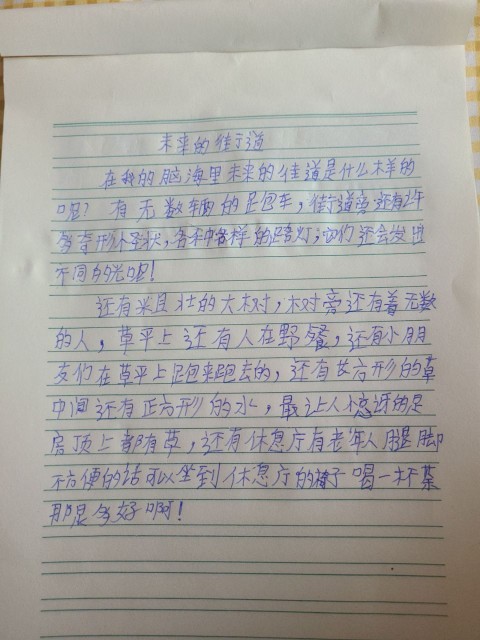 未来的街道
在我的脑海里未来的佳道是什么样的
呢？有无数辆的跑车，街道旁还有许
多奇形怪状，各种各样的路灯；它们还会发出
不同的光呢！
还有粗壮的大树，树旁还有着无数
的人，草平上还有人在野餐，还有小朋
友们在草平上跑来跑去的，还有长方形的草
中间还有正方形的水，最让人惊讶的是
房顶上都有草，还有休息厅有老年人腿脚
不方便的话可以坐到休息厅的椅子喝一杯茶
那是多好啊！